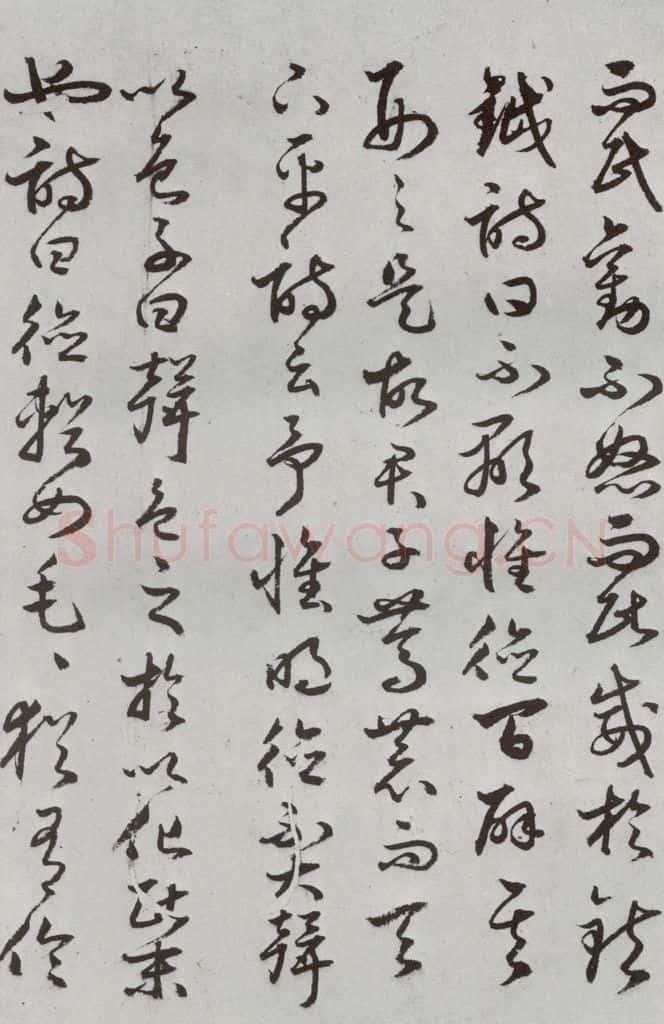 而民勸不怒而民威於鈇
鉞詩曰不顯惟德百辟其
刑之是故君子篤恭而天
下平詩云予懷明德不大聲
以色子曰聲色之於以化民末
也詩曰德輶如毛〻猶有倫
Shufawang.CN